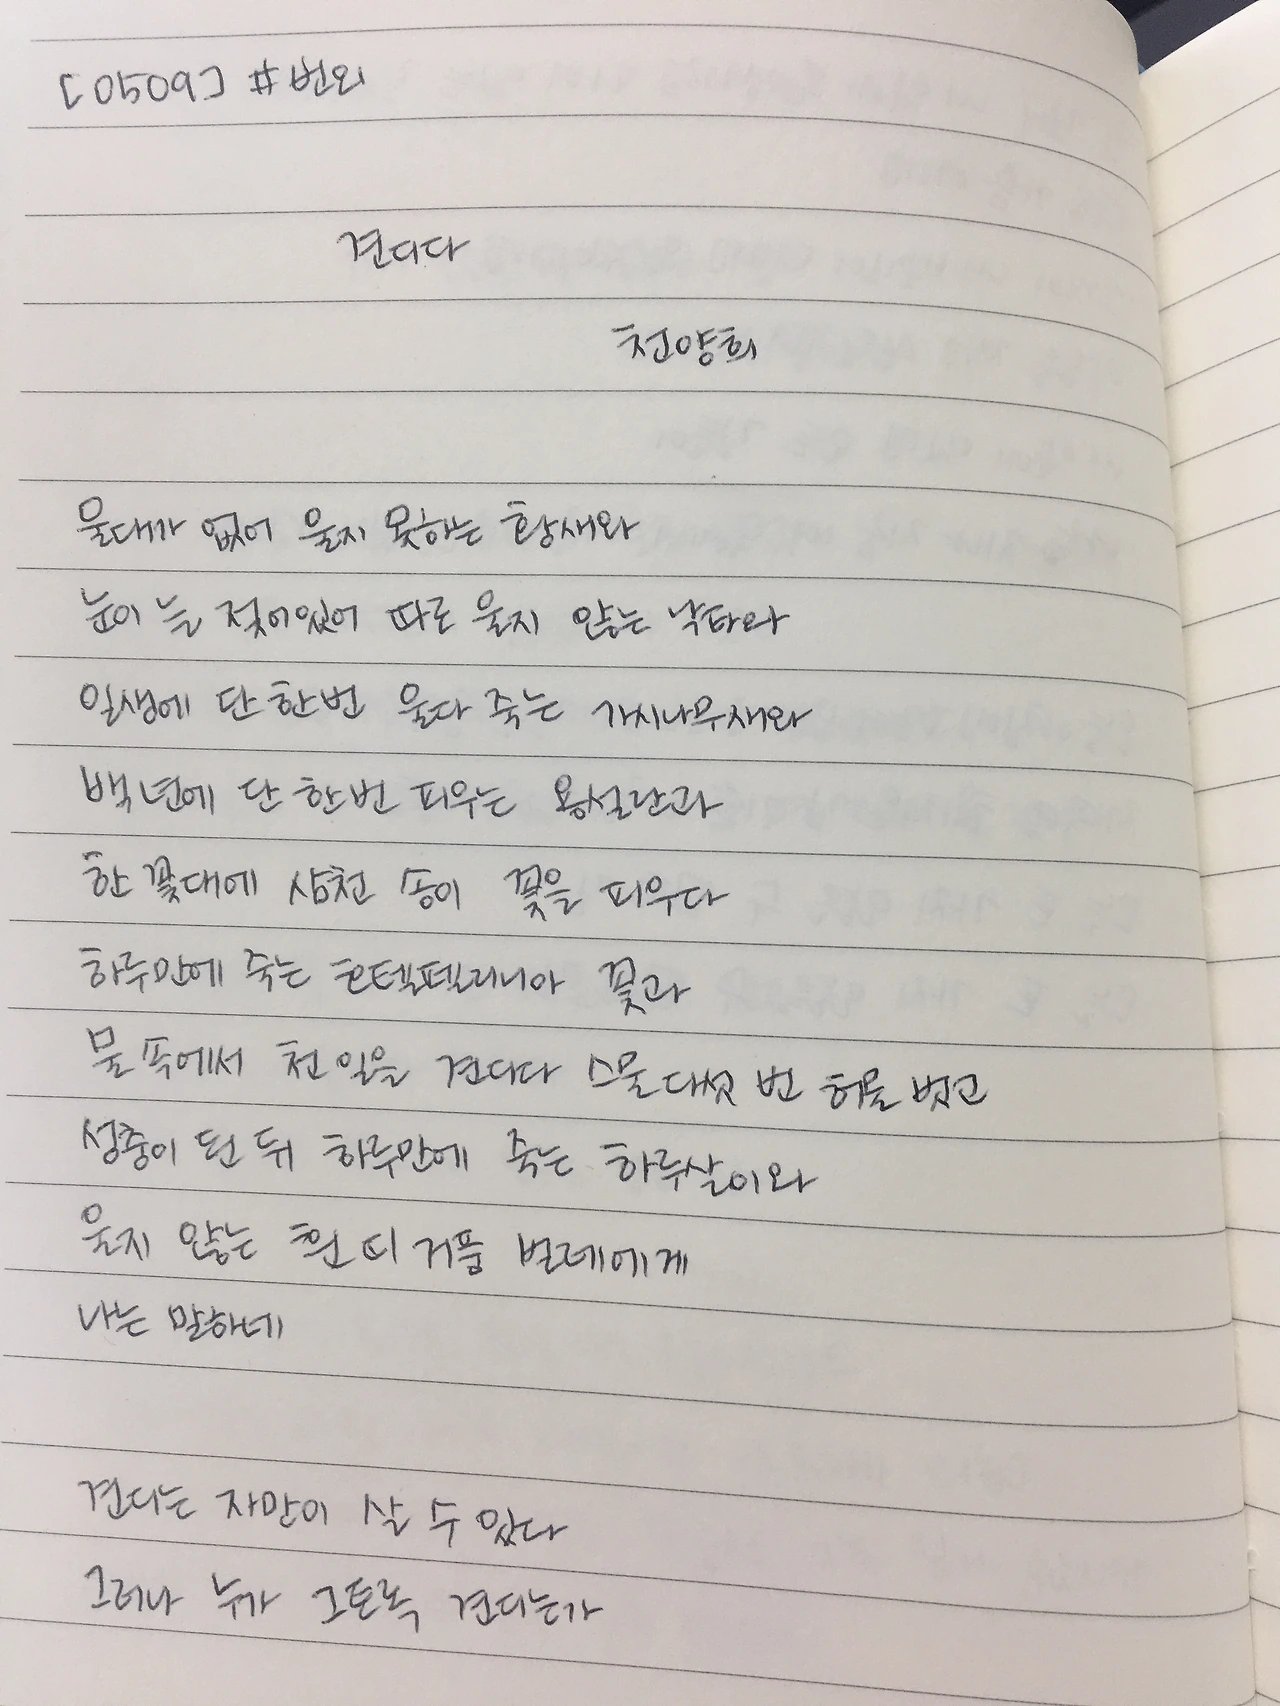 [0509] #번외
견디다
천양희
울대가 없어 울지 못하는 황새와
눈이 늘 젖어있어 따로 울지 않는 낙타와
일생에 단 한번 울다 죽는 가시나무새와
백년에 단 한번 피우는 용설란과
한 꽃대에 삼천 송이 꽃을 피우다
하루만에 죽는 호텔펠리니아 꽃과
물 속에서 천 일을 견디다 스물다섯 번 허물 벗고
성충이 된 뒤 하루만에 죽는 하루살이와
울지 않는 흰띠거품 벌레에게
나는 말하네
견디는 자만이 살 수 있다
그러나 누가 그토록 견디는가